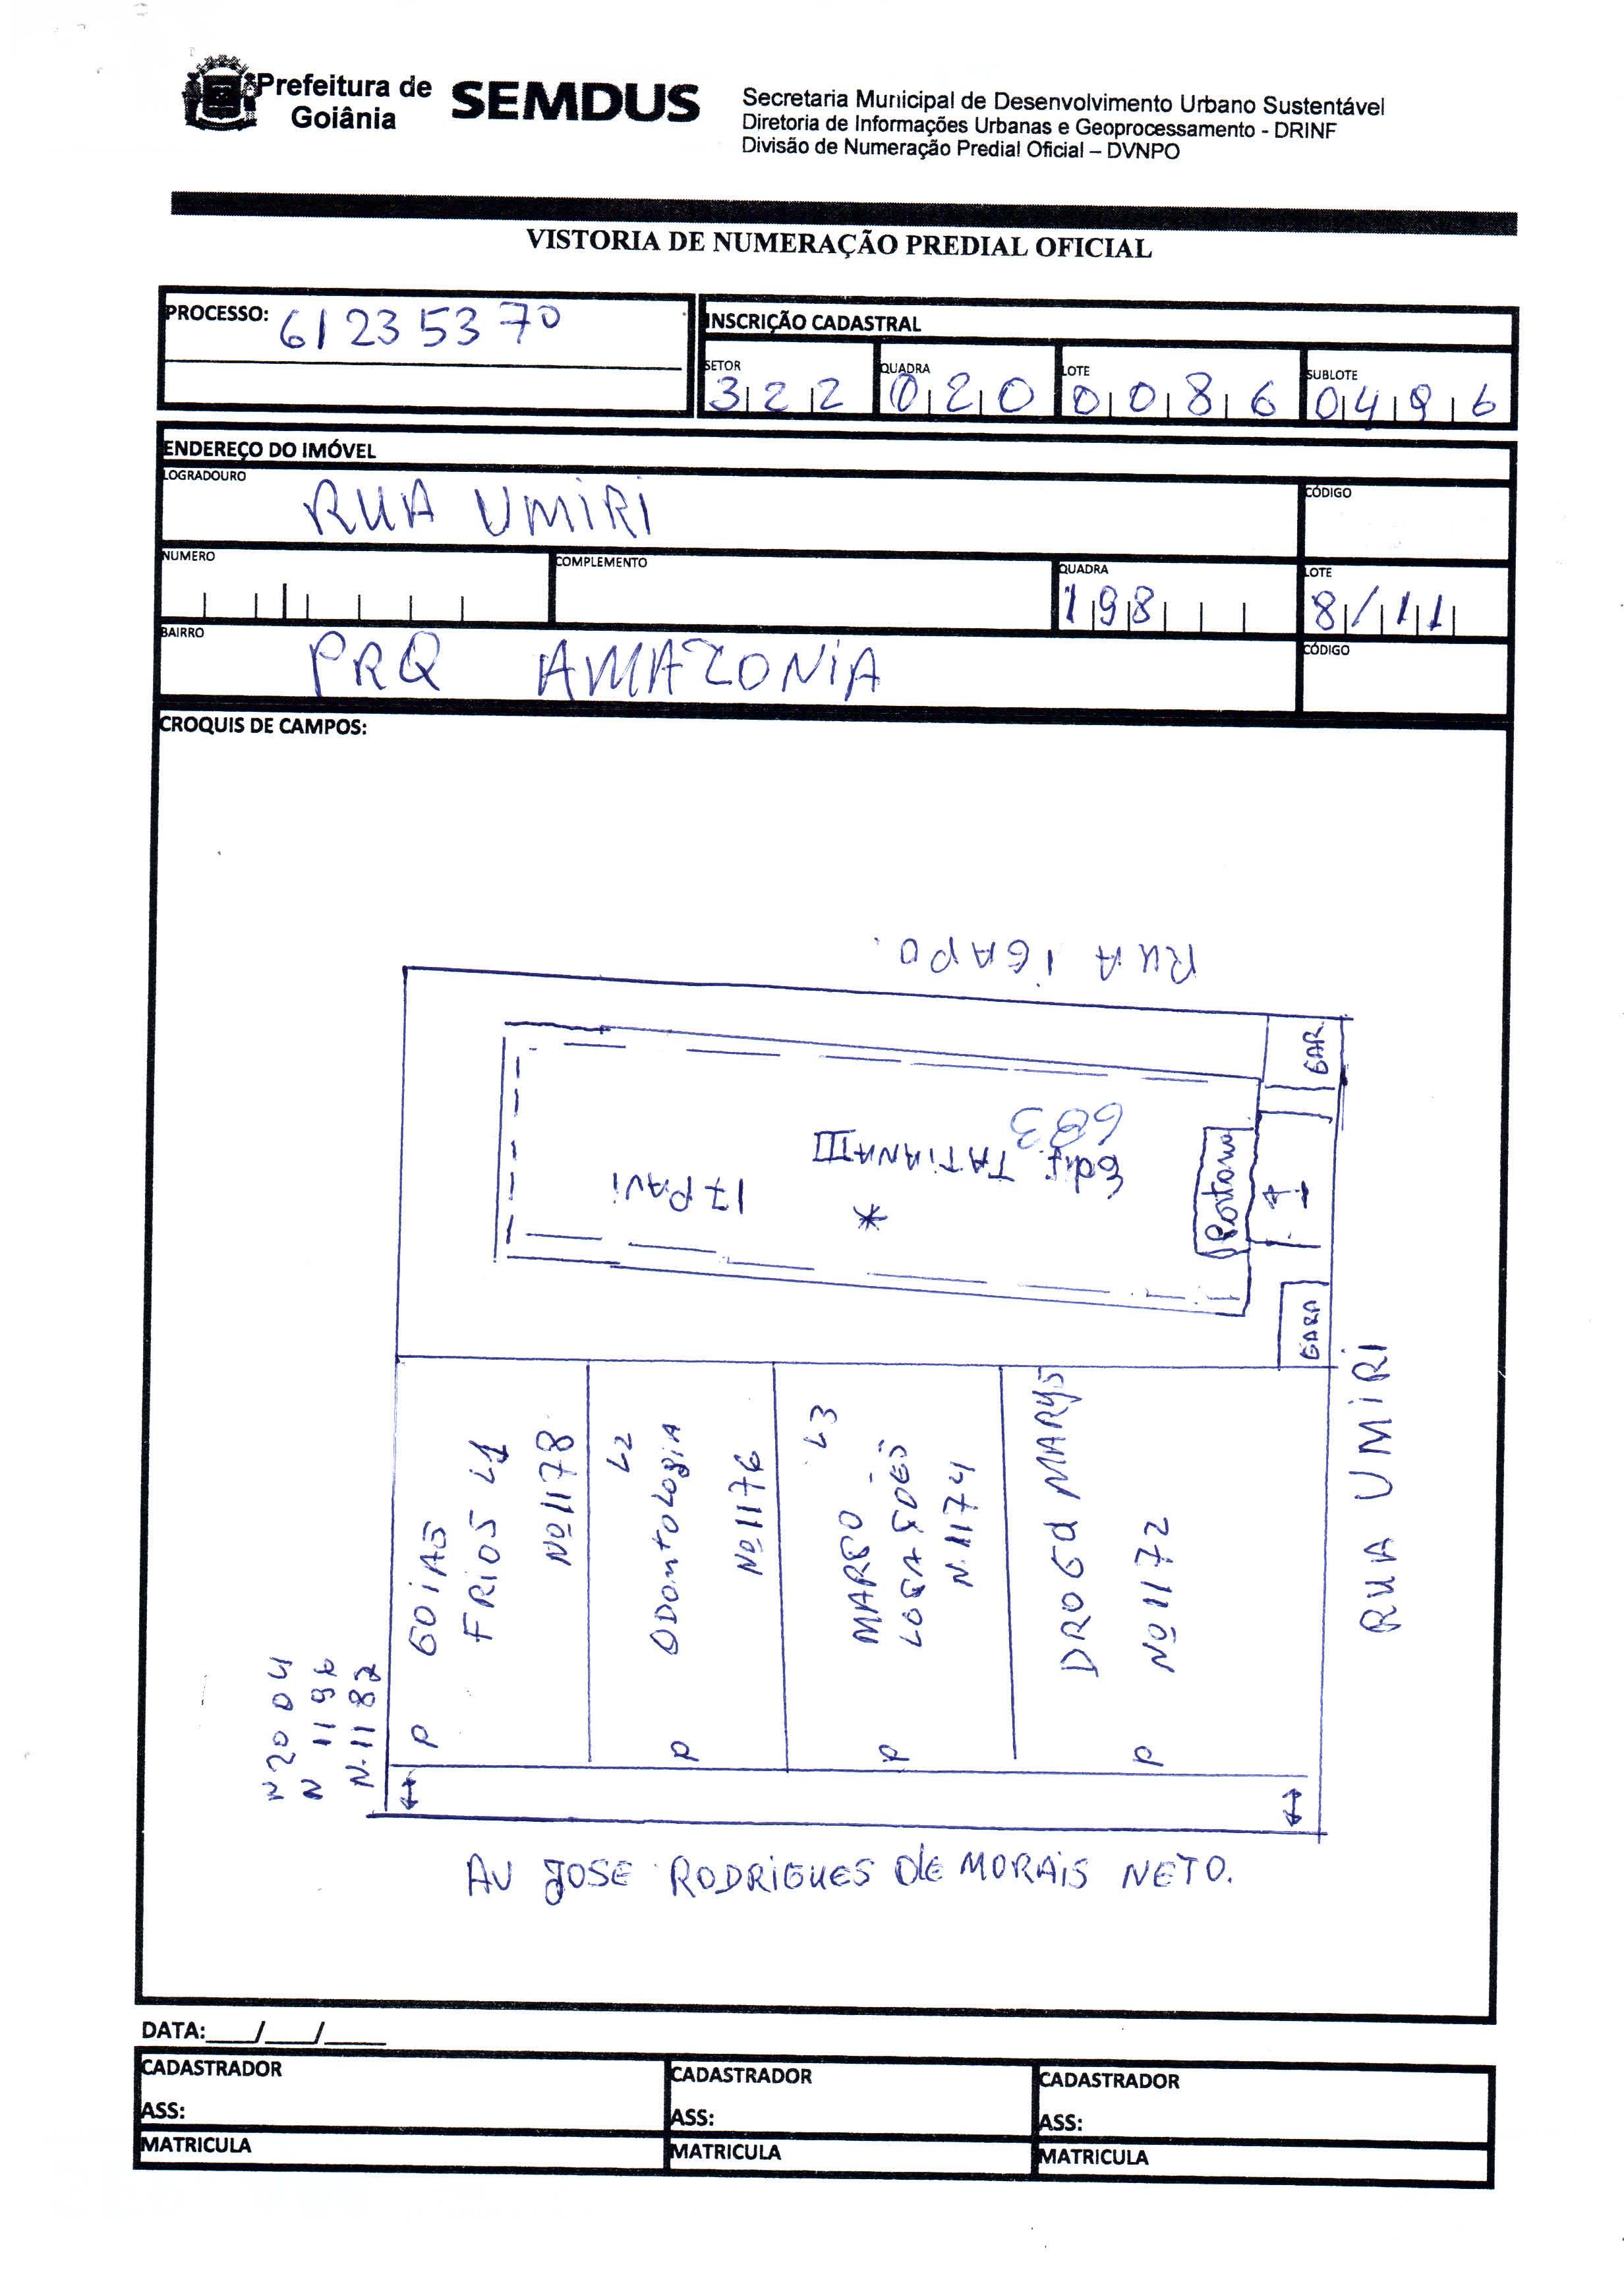 Prefeitura de
Goiânia
SEMDUS
Secretaria Municipal de Desenvolvimento Urbano Sustentável
Diretoria de Informações Urbanas e Geoprocessamento - DRINF
Divisão de Numeração Predial Oficial – DVNPO
VISTORIA DE NUMERAÇÃO PREDIAL OFICIAL
PROCESSO: 61235370
INSCRIÇÃO CADASTRAL
SETOR 322 QUADRA 020 LOTE 0086 SUBLOTE 0496
ENDEREÇO DO IMÓVEL
LOGRADOURO RUA UMIRI CÓDIGO
NUMERO COMPLEMENTO QUADRA 198 LOTE 8/11
BAIRRO PRQ AMAZONIA CÓDIGO
CROQUIS DE CAMPOS:
RUA IGAPO.
GAR.
683
Edif. TATIANA III
17 PAVI
Portaria
GARA
RUA UMIRI
GOIAS
FRIOS L1
Nº 1178
P
L2
ODontologiA
Nº 1176
P
L3
LOCAÇÕES
N. 1174
P
DROGA MARYS
Nº 1172
P
N 2004
N 1196
N. 1182
AV JOSE RODRIGUES de MORAIS NETO.
DATA:____/____/____
CADASTRADOR CADASTRADOR CADASTRADOR
ASS: ASS: ASS:
MATRICULA MATRICULA MATRICULA